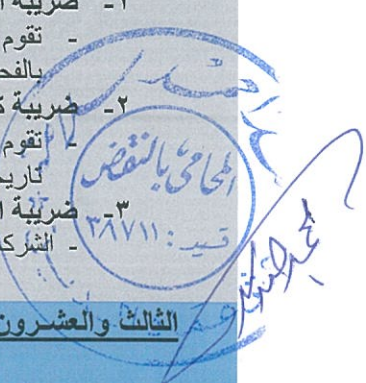 ١- ضريبة ا
- تقوم
بالفح
٢- ضريبة ك
- تقوم
تاريخ
٣- ضريبة ا
- الشرك
المحامى بالنقض
قيد: ٣٨٧١١
الثالث والعشرون